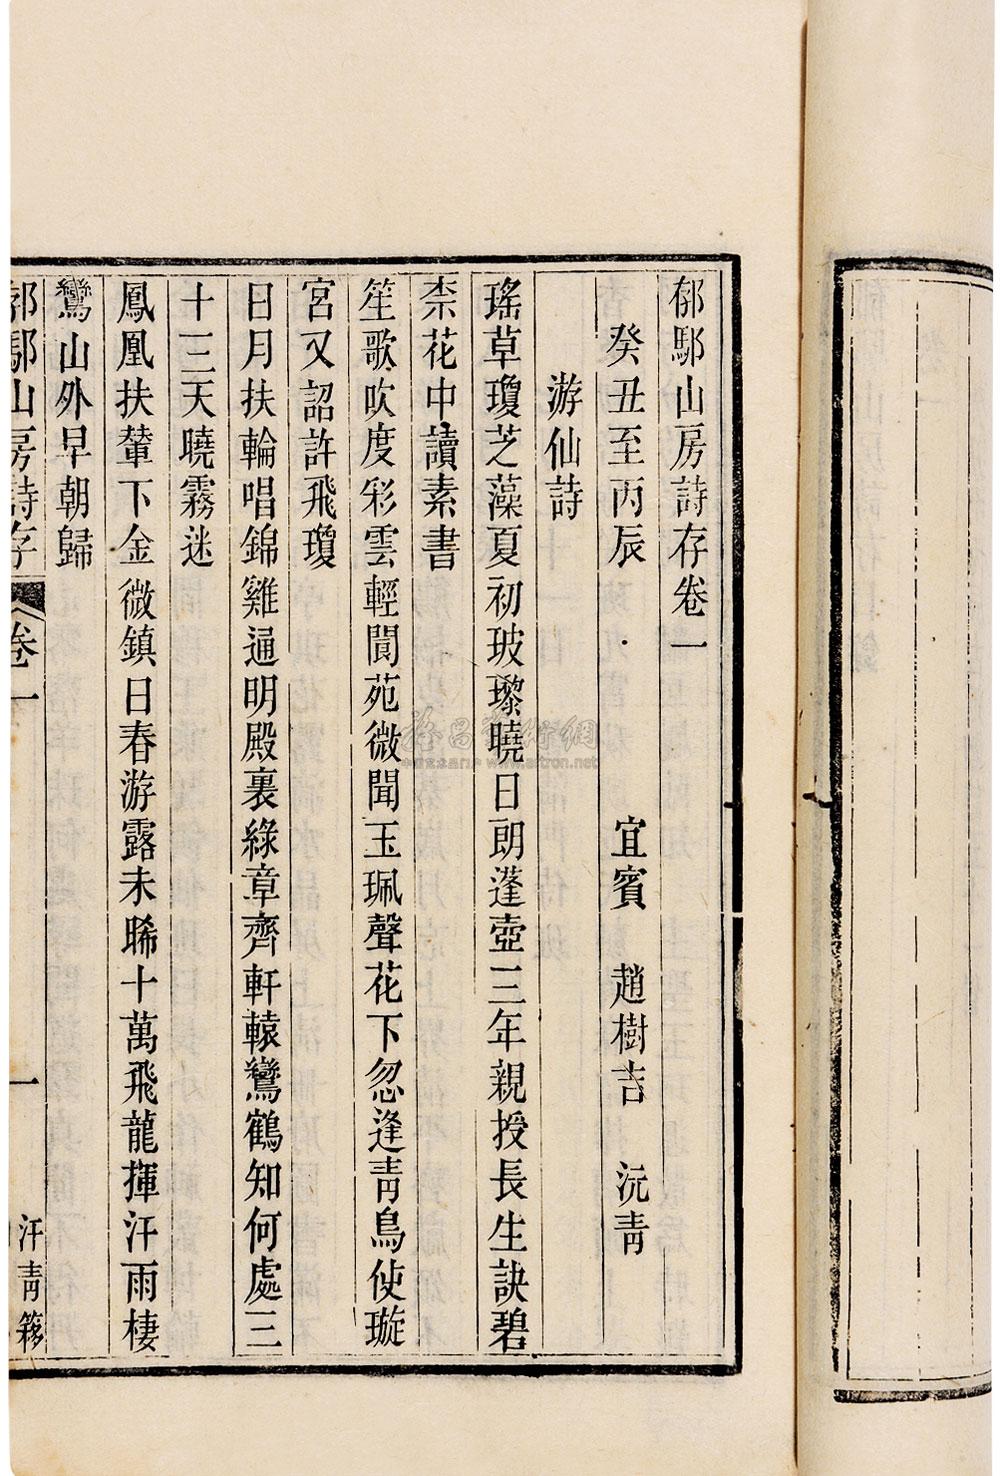 郁鄢山房詩存卷一
癸丑至丙辰 宜賓 趙樹吉 沅靑
游仙詩
瑤草瓊芝藻夏初玻瓈曉日朗蓬壺三年親授長生訣碧
柰花中讀素書
笙歌吹度彩雲輕閬苑微聞玉珮聲花下忽逢靑鳥使璇
宮又詔許飛瓊
日月扶輪唱錦雞通明殿裏綠章齊軒轅鸞鶴知何處三
十三天曉霧迷
鳳凰扶輦下金微鎮日春游露未晞十萬飛龍揮汗雨棲
鸞山外早朝歸
郁鄢山房詩存 卷一 一 汗靑簃
www.artron.net